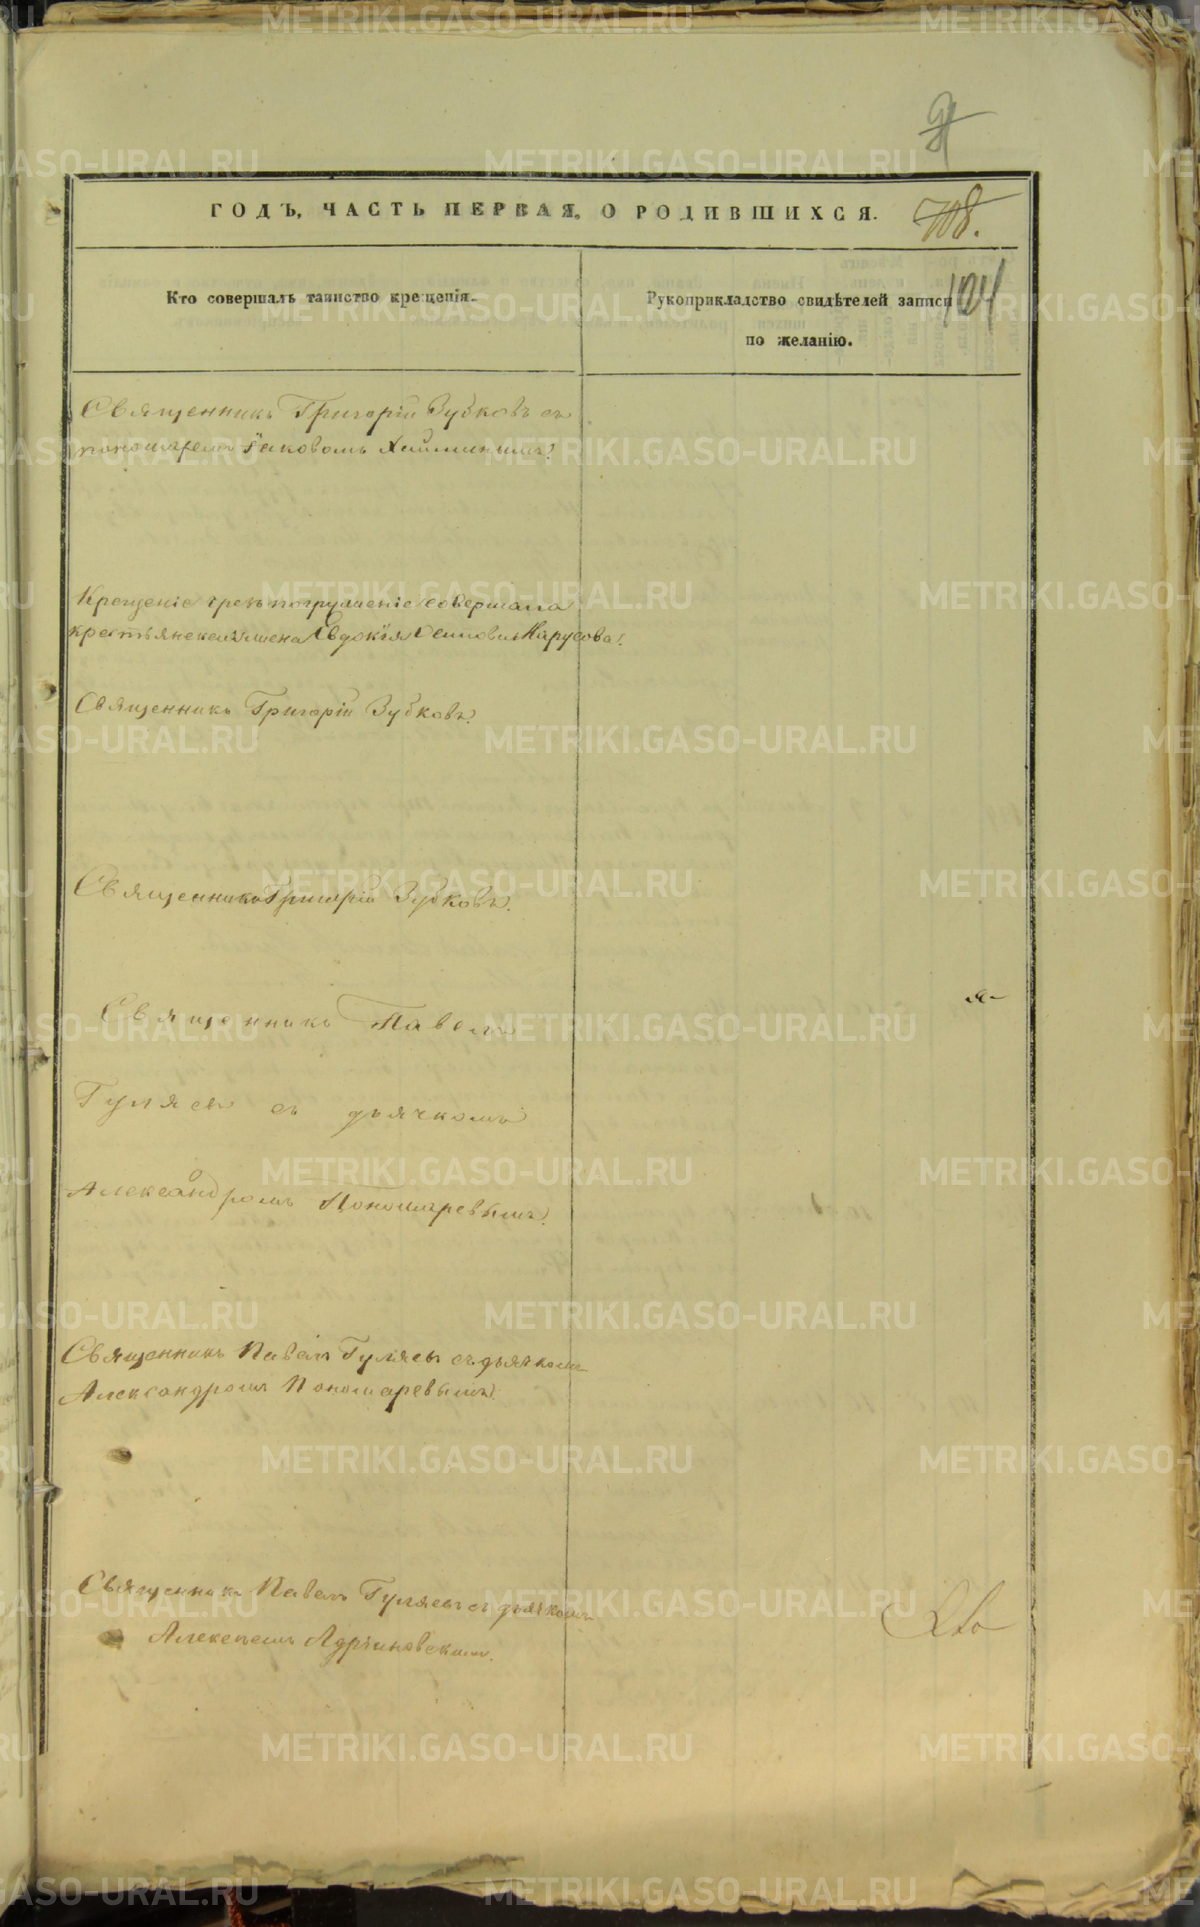 ГОДЪ, ЧАСТЬ ПЕРВАЯ, О РОДИВШИХСЯ.
708.
104
Кто совершалъ таинство крещенія.
Рукоприкладство свидѣтелей записи
по желанію.
Священникъ Григорій Зубковъ съ
пономаремъ Іаковомъ
Крещеніе чрезъ погруженіе совершала
крестьянская жена Евдокія Осиповна
Священникъ Григорій Зубковъ.
Священникъ Григорій Зубковъ.
Священникъ Павелъ
Гуляевъ съ дьячкомъ
Александромъ Пономаревымъ.
Священникъ Павелъ Гуляевъ съ дьячкомъ
Александромъ Пономаревымъ.
Священникъ Павелъ Гуляевъ съ дьячкомъ
Алексѣемъ Адріановскимъ.
METRIKI.GASO-URAL.RU